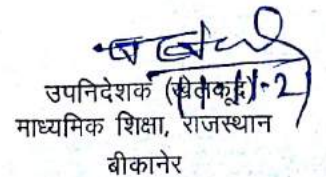 उपनिदेशक (खेलकूद)
माध्यमिक शिक्षा, राजस्थान
बीकानेर